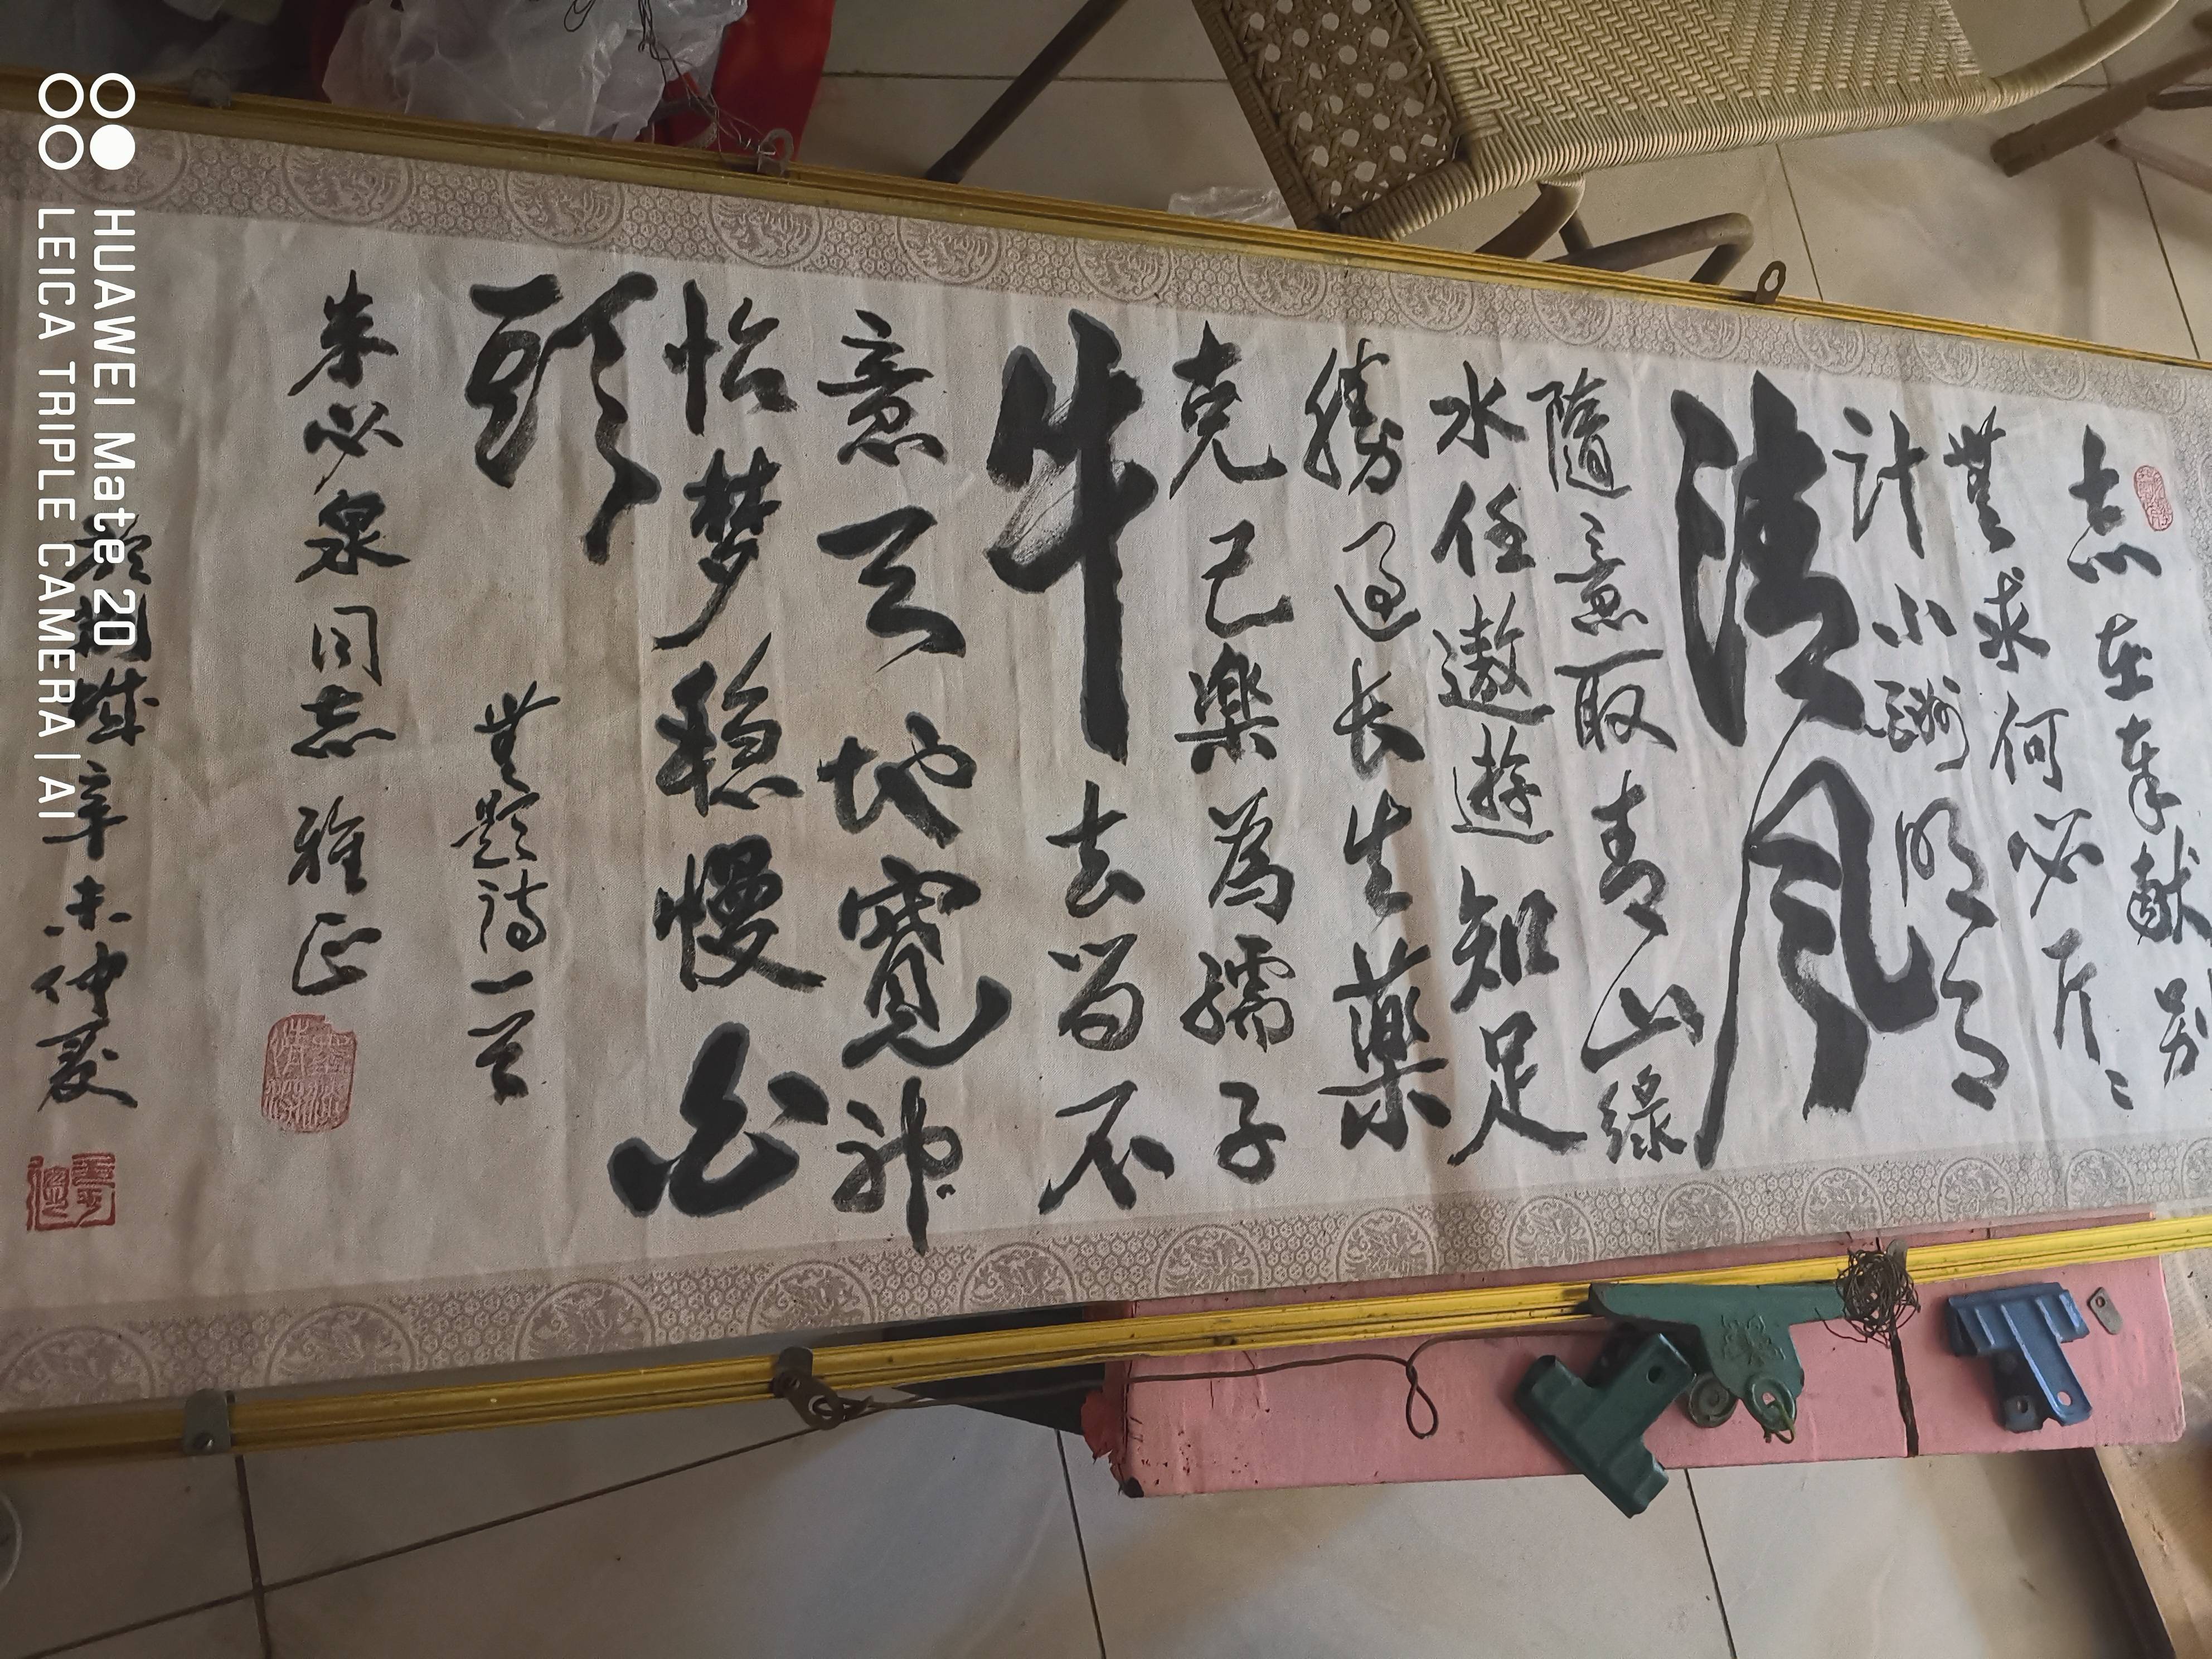 志在奉献别
無求何必斤〻
计小酬明月
清风
隨意取青山綠
水任遨遊知足
勝过长生薬
克己楽為孺子
牛去留不
意天地寬神
怡梦稳慢白
頭
無题诗一首
朱必泉同志雅正
於桐城辛未仲夏
HUAWEI Mate 20
LEICA TRIPLE CAMERA | AI